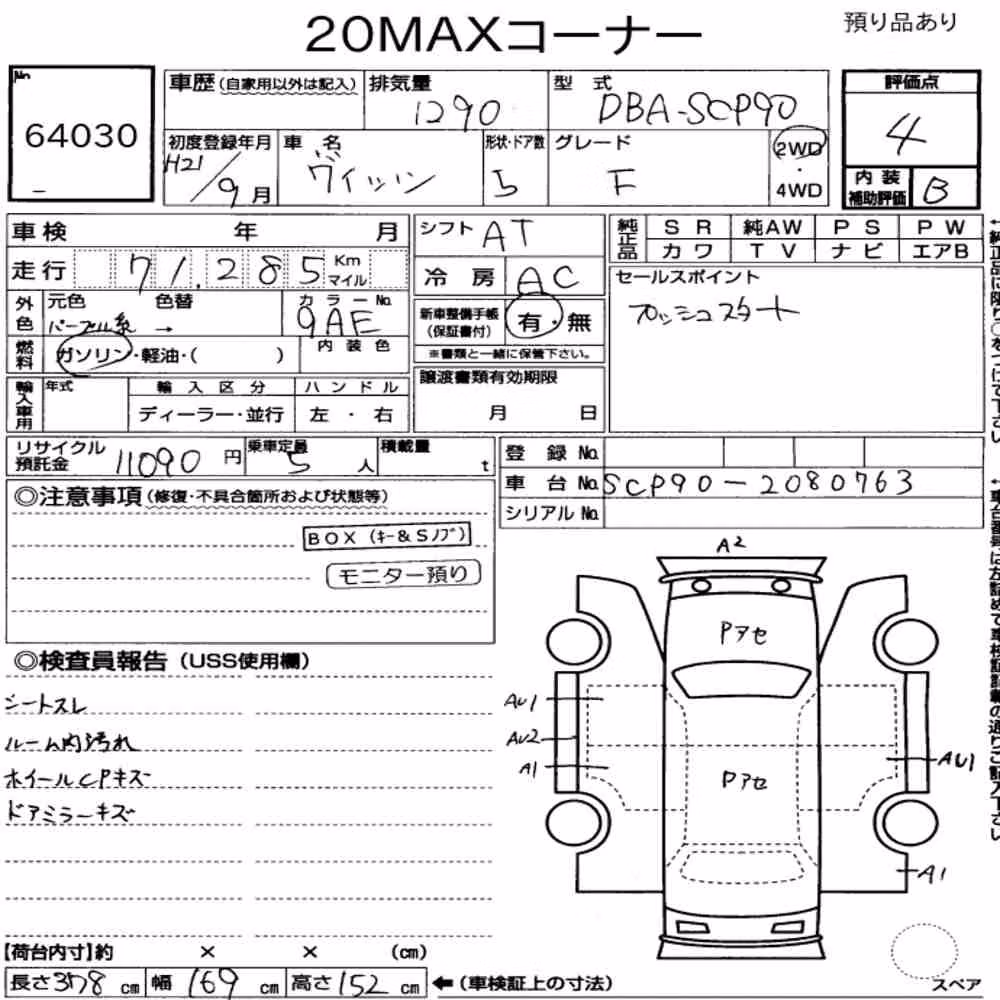 20MAXコーナー
預り品あり
No.
64030
車歴(自家用以外は記入) 排気量 型式 評価点
1290 DBA-SCP90 4
初度登録年月 車名 形状・ドア数 グレード 2WD・4WD
H21/9月 ヴィッツ 5 F
内装補助評価 B
車検 年 月
シフト AT
純正品 SR 純AW PS PW
カワ TV ナビ エアB
走行 71.285 Km マイル
冷房 AC
セールスポイント
プッシュスタート
外色 元色 色替 カラーNo.
パープル系 → 9AE
新車整備手帳(保証書付) 有・無
※書類と一緒に保管下さい。
燃料 ガソリン・軽油・( ) 内装色
輸入車用 年式 輸入区分 ハンドル
ディーラー・並行 左・右
譲渡書類有効期限
月 日
リサイクル預託金 11090円 乗車定員 5人 積載量 t
登録No.
車台No. SCP90-2080763
シリアルNo.
◎注意事項(修復・不具合箇所および状態等)
BOX(キー&Sノブ)
モニター預り
◎検査員報告(USS使用欄)
シートスレ
ルーム内汚れ
ホイールCPキズ
ドアミラーキズ
A2
Pアセ
AU1
AU2
A1
Pアセ
AU1
A1
スペア
【荷台内寸】約 × × (cm)
長さ378cm 幅169cm 高さ152cm ←(車検証上の寸法)